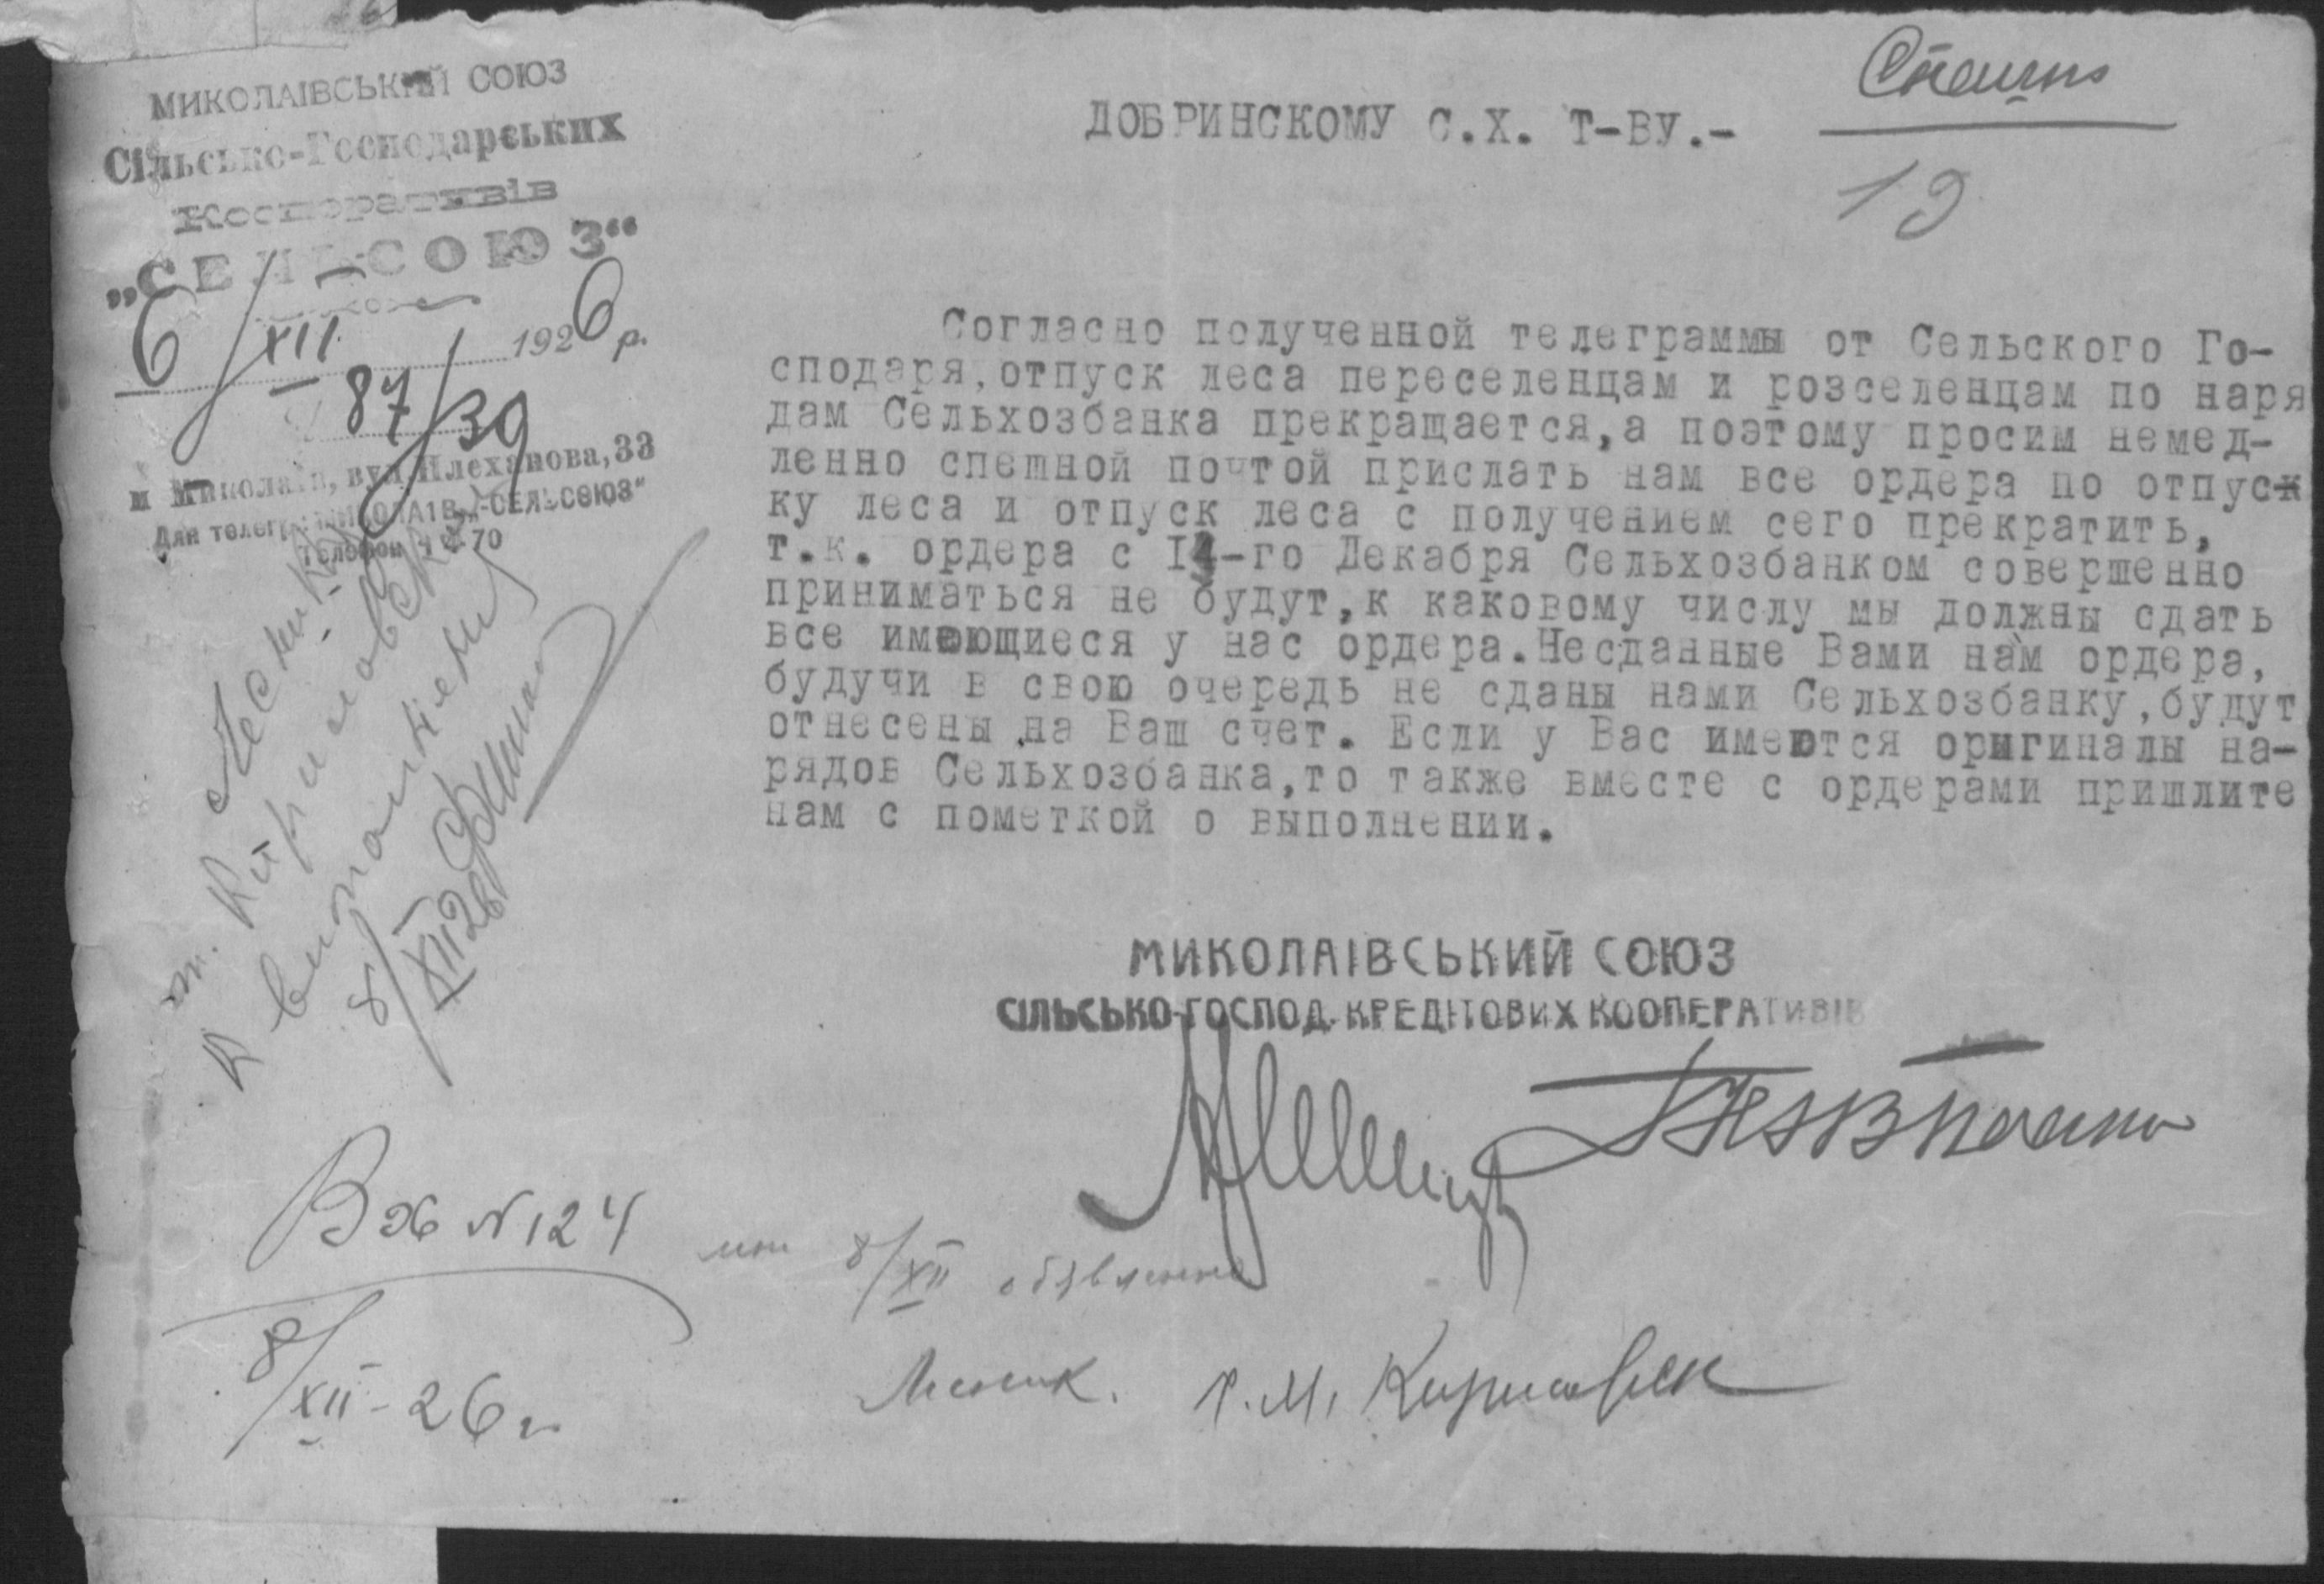 МИКОЛАІВСЬКИЙ СОЮЗ
Сільсько-Господарських
Кооперативів
„СЕЛЬ-СОЮЗ“
6/XII 1926 р.
87/39
м Миколаів, вул. Плеханова, 33
Для телегр. МИКОЛАІВ-„СЕЛЬСОЮЗ“
Телефон 70
Спешно
ДОБРИНСКОМУ С.Х. Т-ВУ.-
19
Согласно полученной телеграммы от Сельского Го-
сподаря,отпуск леса переселенцам и розселенцам по наря
дам Сельхозбанка прекращается,а поэтому просим немед-
ленно спешной почтой прислать нам все ордера по отпуск
ку леса и отпуск леса с получением сего прекратить,
т.к. ордера с I4-го Декабря Сельхозбанком совершенно
приниматься не будут,к каковому числу мы должны сдать
все имеющиеся у нас ордера.Несданные Вами нам ордера,
будучи в свою очередь не сданы нами Сельхозбанку,будут
отнесены на Ваш счет. Если у Вас имеются оригиналы на-
рядов Сельхозбанка,то также вместе с ордерами пришлите
нам с пометкой о выполнении.
Леснику
т. Кириловскому
к выполнению
8/XII 26
МИКОЛАІВСЬКИЙ СОЮЗ
СІЛЬСЬКО-ГОСПОД. КРЕДИТОВИХ КООПЕРАТИВІВ
Вх № 124
8/XII - 26 г.
мне 8/XII обявленно
Лесник. Кириловск